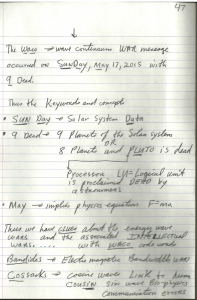 47
The Waco → wave continuum WAR message
occurred on SunDay, May 17, 2015 with
9 Dead.
Thus the Keywords and concepts
• SUN Day → Solar System Data
• 9 Dead → 9 Planets of the Solar System
OR
8 Planets and PLUTO is dead
Processor LU=Logical unit
is proclaimed DEAD by
astronomers
• May → implies physics equation F=ma
Thus we have clues about the energy wave
WARS and the assembly INTELLECTUAL
WARS.... with WACO code words
Bandidos → Electromagnetic Bandwidth wars
Cossacks → cosine waves Link to human
COUSIN sin wave bio-physics
communication errors